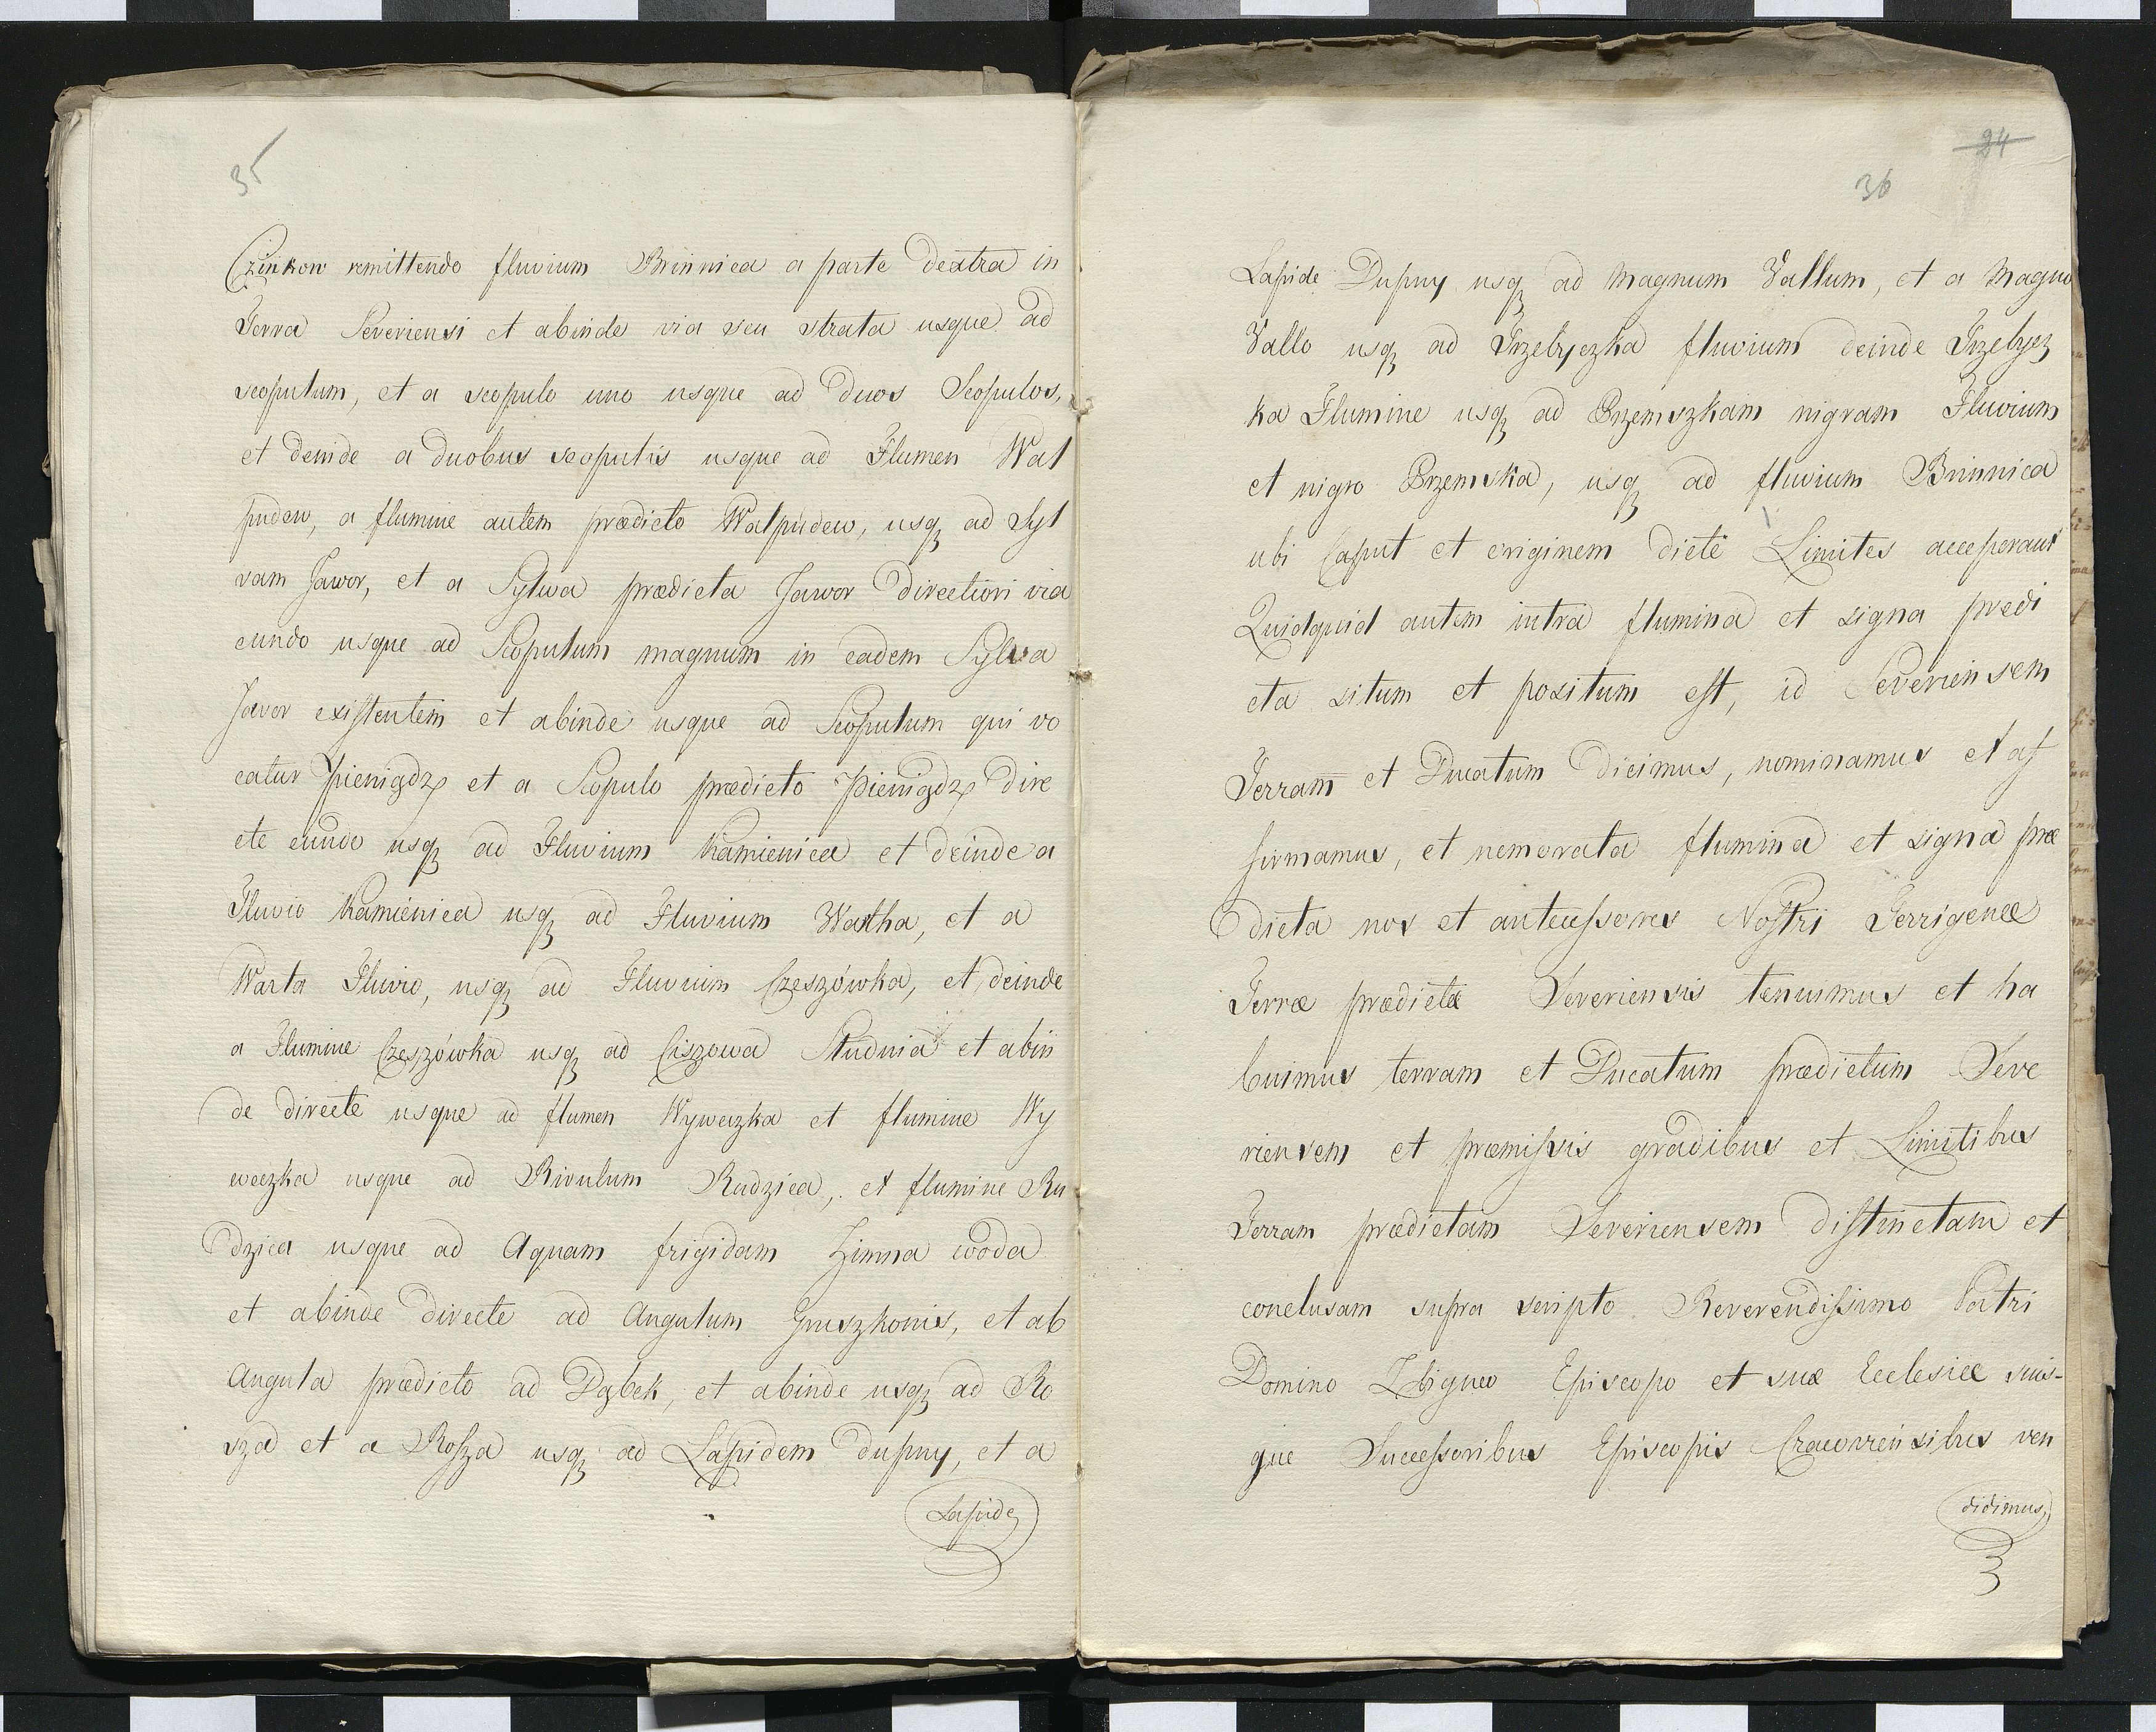 35
Czinkow remittendo fluvium Brinnica a parte dextra in
Terra Severiensi et abinde via seu strata usque ad
scopulum, et a scopulo uno usque ad duos Scopulos,
et deinde a duobus scopulis usque ad Flumen Wal
pudew, a flumine autem prædicto Walpudew, usq ad Syl
vam Jawor, et a Sylwa prædicta Jawor directiori via
eundo usque ad Scopulum magnum in eadem Sylva
Javor existentem et abinde usque ad Scopulum qui vo
catur Pieniądz et a Scopulo prædicto Pieniądz dire
cte eundo usq ad Fluvium Kamienica et deinde a
Fluvio Kamienica usq ad Fluvium Wartha, et a
Warta Fluvio, usq ad Fluvium Czeszówka, et deinde
a Flumine Czeszówka usq ad Ciszowa Studnia et abin
de directe usque ad flumen Wyweczka et flumine Wy
weczka usque ad Rivulum Rudzica, et flumine Ru
dzica usque ad Aquam frigidam Zimna woda
et abinde directe ad Angulum Gruszkonis, et ab
Angula prædicto ad Dąbek, et abinde usq ad Ro
sza et a Rosza usq ad Lapidem dupny, et a
Lapide
24
36
Lapide Dupny usq ad Magnum Vallum, et a Magno
Vallo usq ad Trzebyczka fluvium deinde Trzebycz
ka Flumine usq ad Przemszkam nigram Fluvium
et nigro Przemska, usq ad fluvium Brinnica
ubi Caput et originem dicti Limites acceperant
Quidquid autem intra flumina et signa prædi
cta situm et positum est, id Severiensem
Terram et Ducatum dicimus, nominamus et af
firmamus, et nemorata flumina et signa præ
dicta nos et antecessores Nostri Terrigenæ
Terræ prædictæ Severiensis tenuimus et ha
buimus terram et Ducatum prædictum Seve
riensem et præmissis gradibus et Limitibus
Terram prædictam Severiensem distinctam et
conclusam supra scripto Reverendissimo Patri
Domino Zbigneo Episcopo et suæ Ecclesiæ suis-
que Successoribus Episcopis Cracoviensibus ven
didimus,